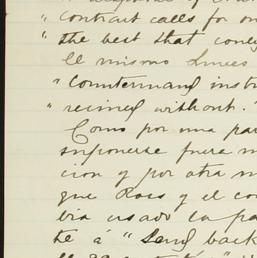 " contract calls for on
" the best that coul
El mismo Lunes
" Countermand instr
" recined without."
Como por una par
suponerse fuera m
cion y por otra m
que Ross y el co
bia usado la pa
te á " Send back